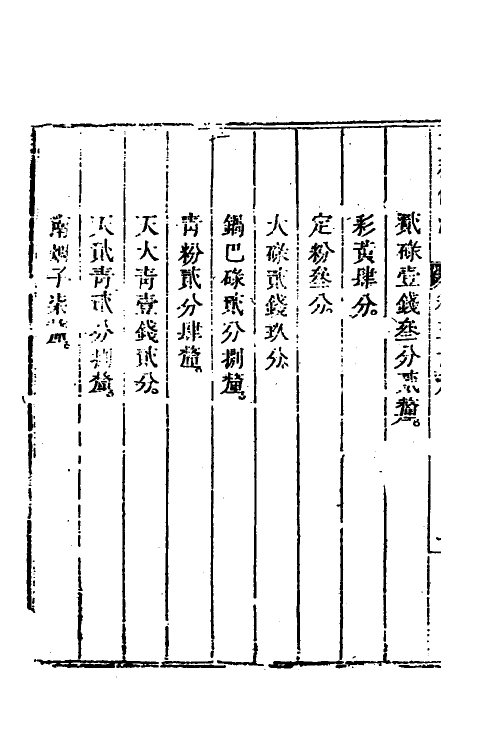 貳碌壹錢叁分貳釐。
彩黃肆分。
定粉叁分。
大碌貳錢玖分
鍋巴碌貳分捌釐。
青粉貳分肆釐。
天大青壹錢貳分。
天貳青貳分捌釐。
南烟子柒釐。